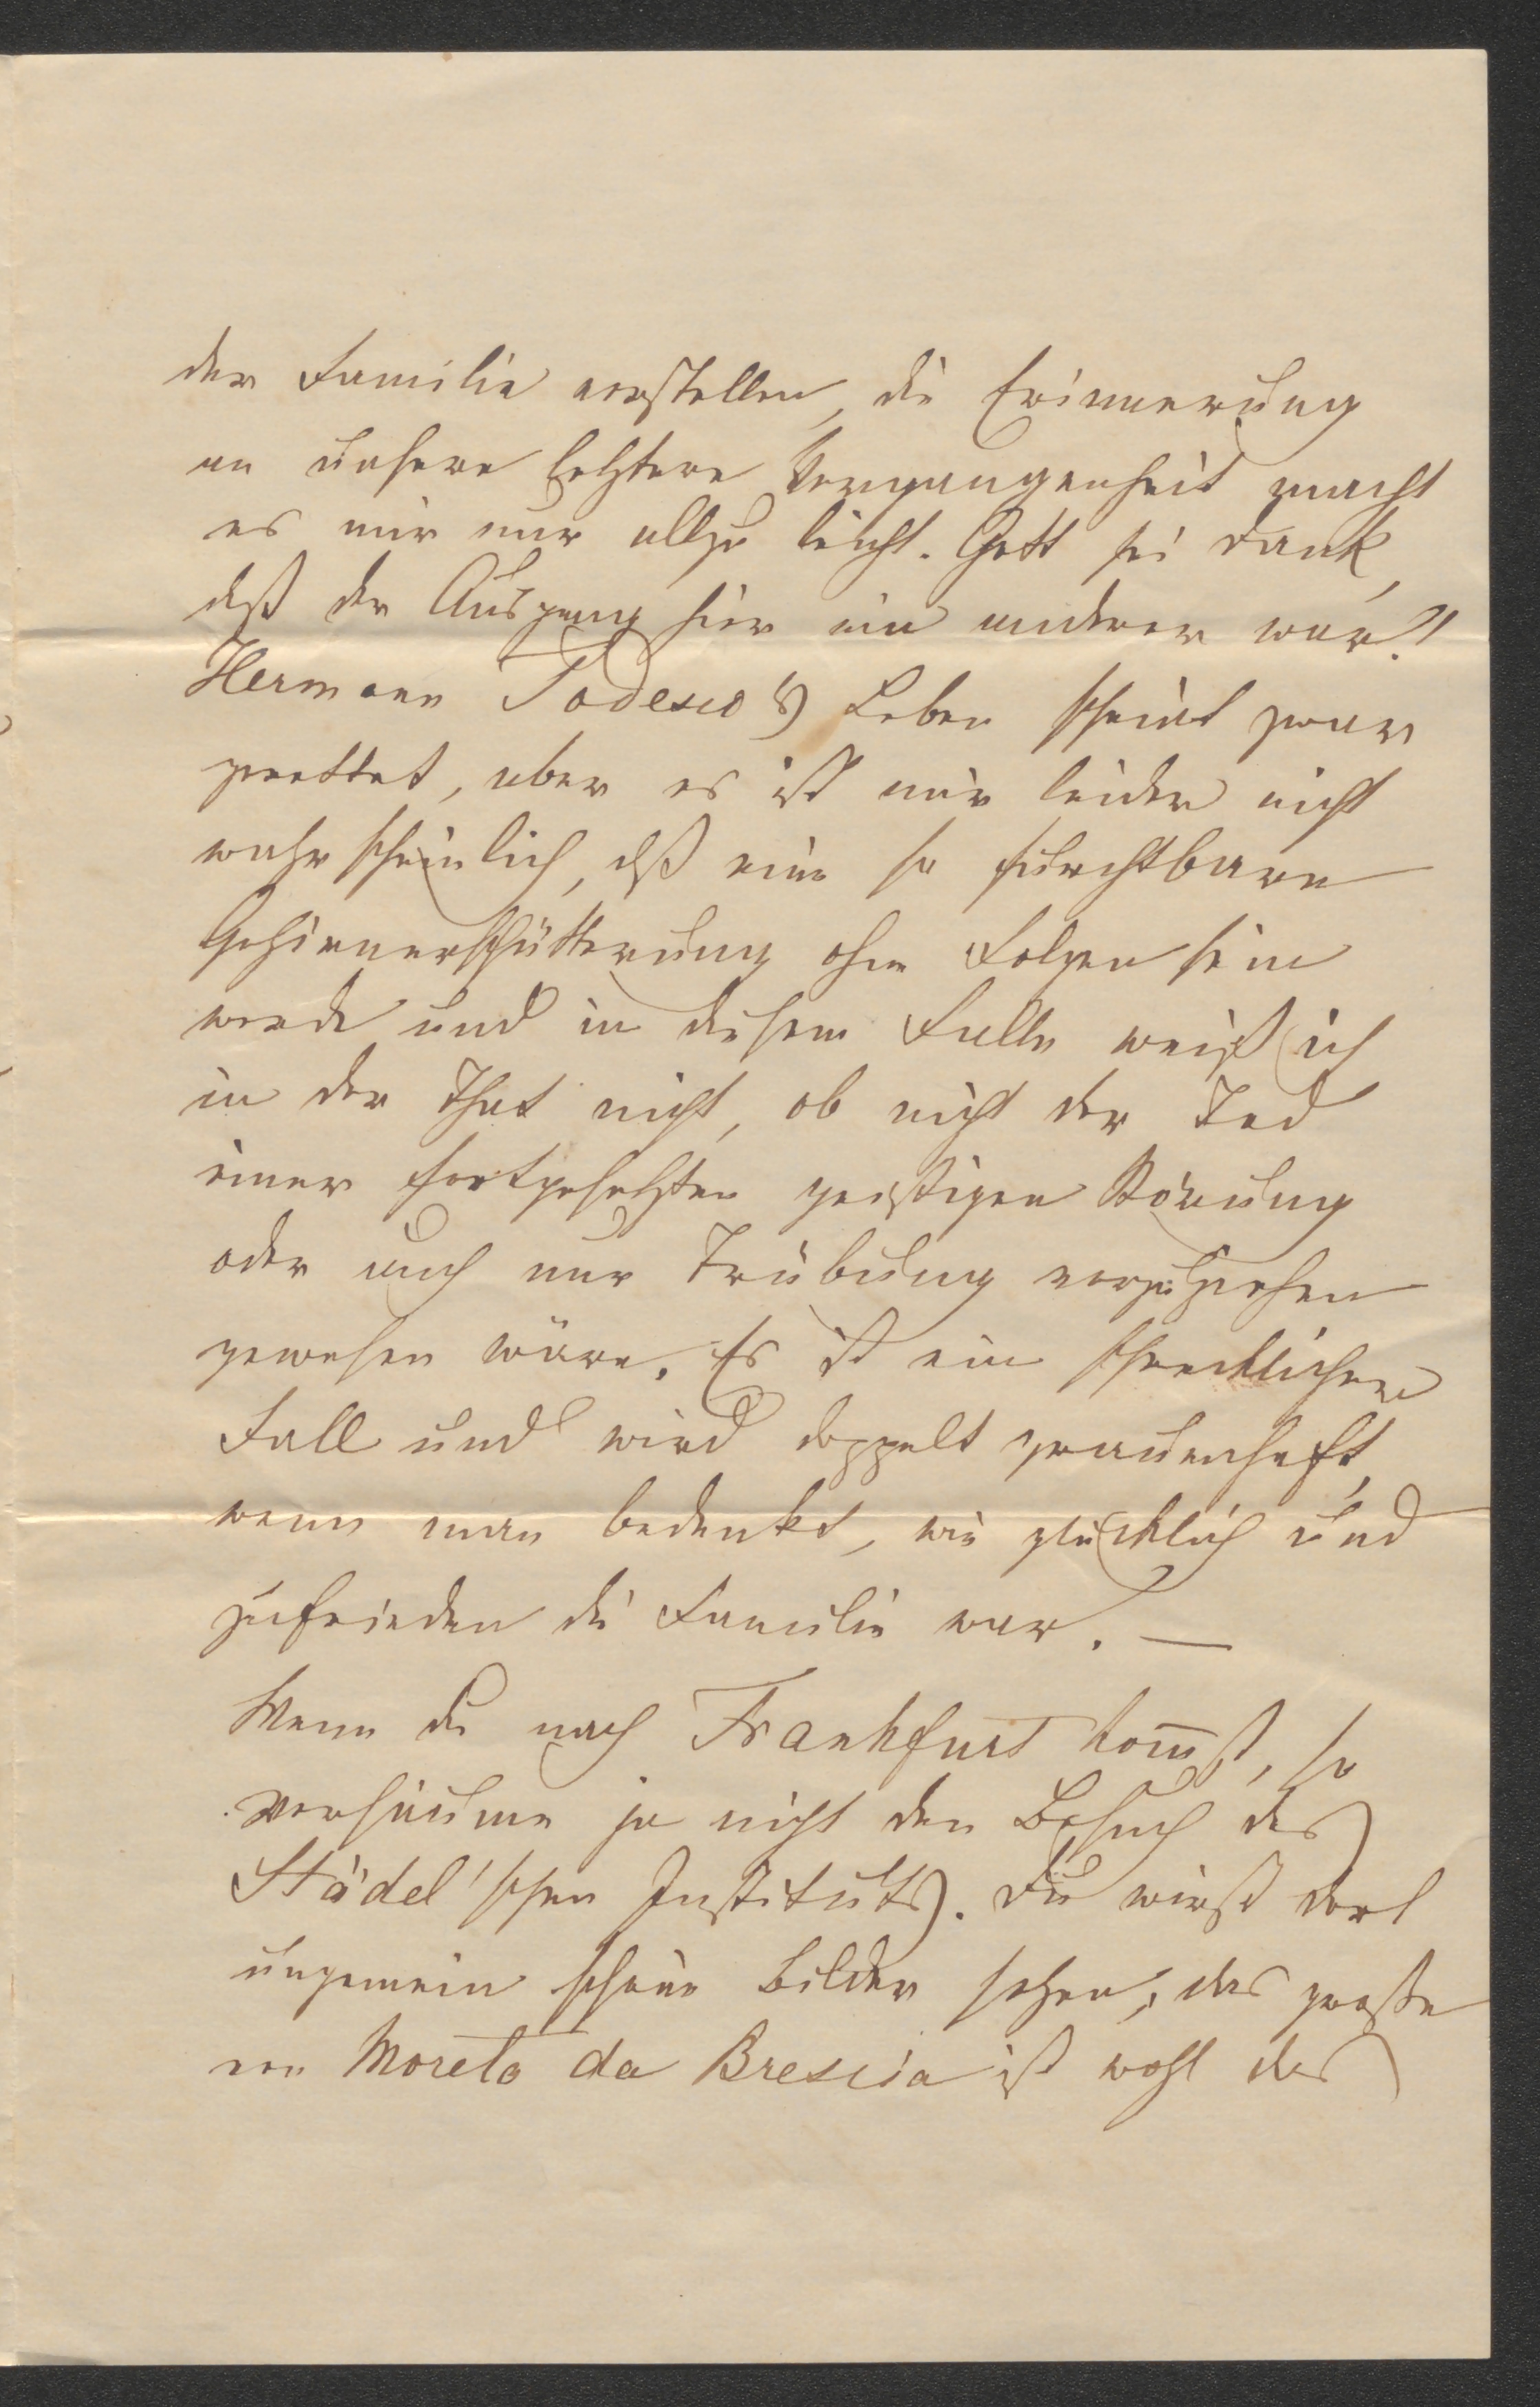 der Familie vorstellen, die Erinnerung
an unsere letztere Vergangenheit macht
es mir nur allzu leicht. Gott sei Dank,
daß der Ausgang hier ein anderer war!
Hermann Todesco's Leben scheint zwar
gerettet, aber es ist mir leider nicht
wahrscheinlich, daß eine so furchtbare
Gehirnerschütterung ohne Folgen sein
werde und in diesem Falle weiß ich
in der That nicht, ob nicht der Tod
einer fortgesetzten geistigen Störung
oder auch nur Trübung vorzuziehen
gewesen wäre. Es ist ein schrecklicher
Fall und wird doppelt grauenhaft,
wenn man bedenkt, wie glücklich und
zufrieden die Familie war. —
Wenn du nach Frankfurt kom̅st, so
versäume ja nicht den Besuch des
Städel'schen Instituts. Du wirst dort
ungemein schöne Bilder sehen; das große
von Moreto da Brescia ist wohl das